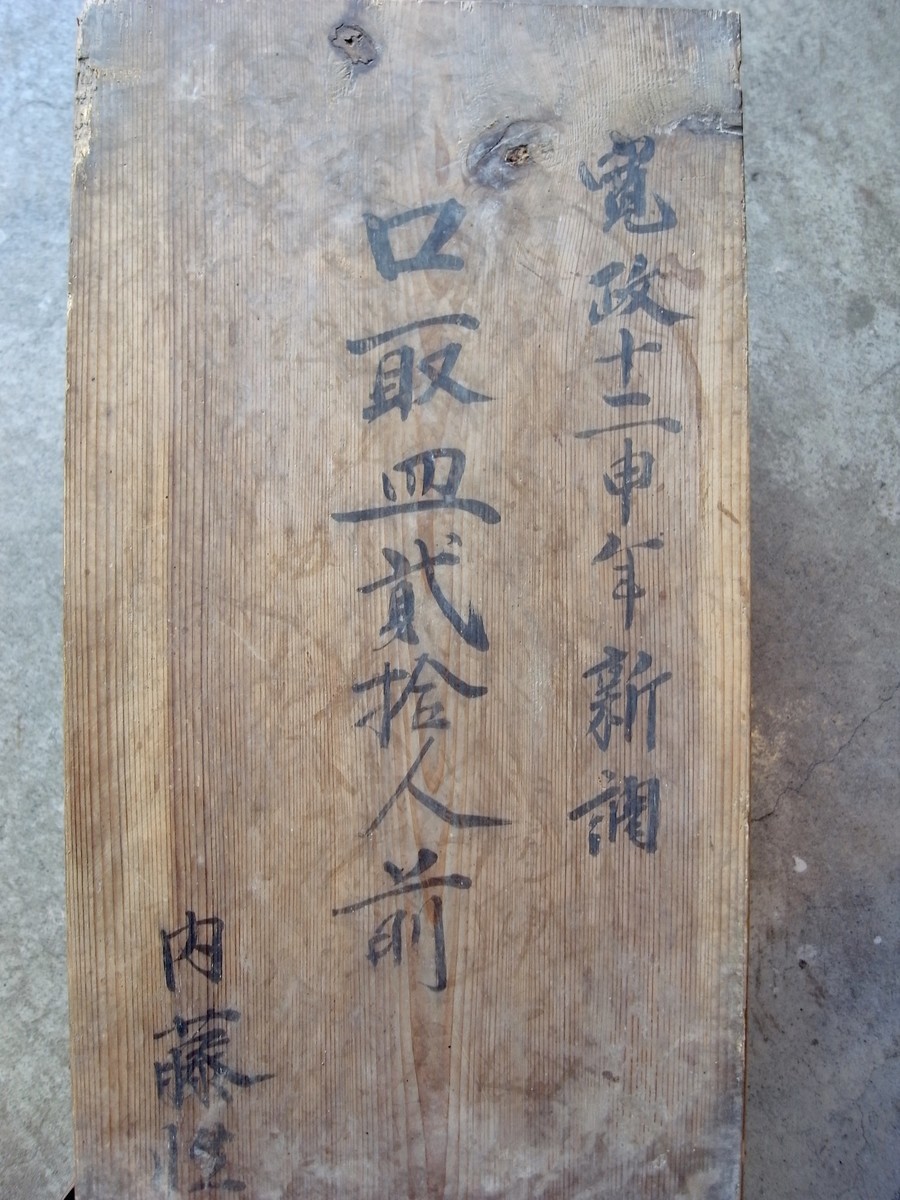 寛政十二申年新調
口取皿貳拾人前
内藤性